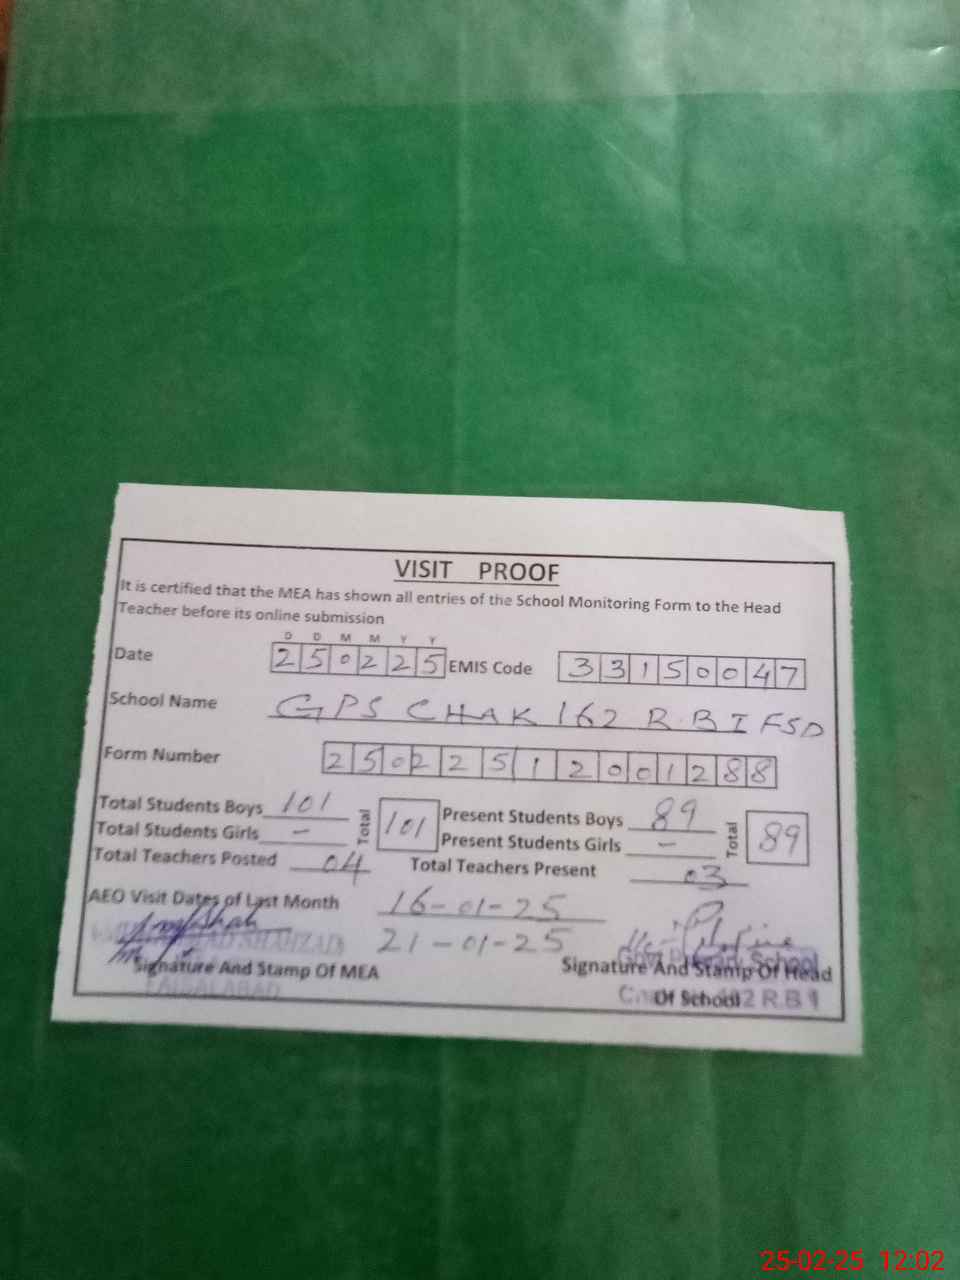 VISIT PROOF
It is certified that the MEA has shown all entries of the School Monitoring Form to the Head
Teacher before its online submission
D D M M Y Y
Date 250225 EMIS Code 33150047
School Name GPS CHAK 162 R.B I FSD
Form Number 250225120012​88
Total Students Boys 101 Total 101 Present Students Boys 89 Total 89
Total Students Girls - Present Students Girls -
Total Teachers Posted 04 Total Teachers Present 03
AEO Visit Dates of Last Month 16-01-25
21-01-25
Signature And Stamp Of MEA
FAISALABAD
Govt Primary School
Signature And Stamp Of Head
Of School
R.B 1
25-02-25 12:02